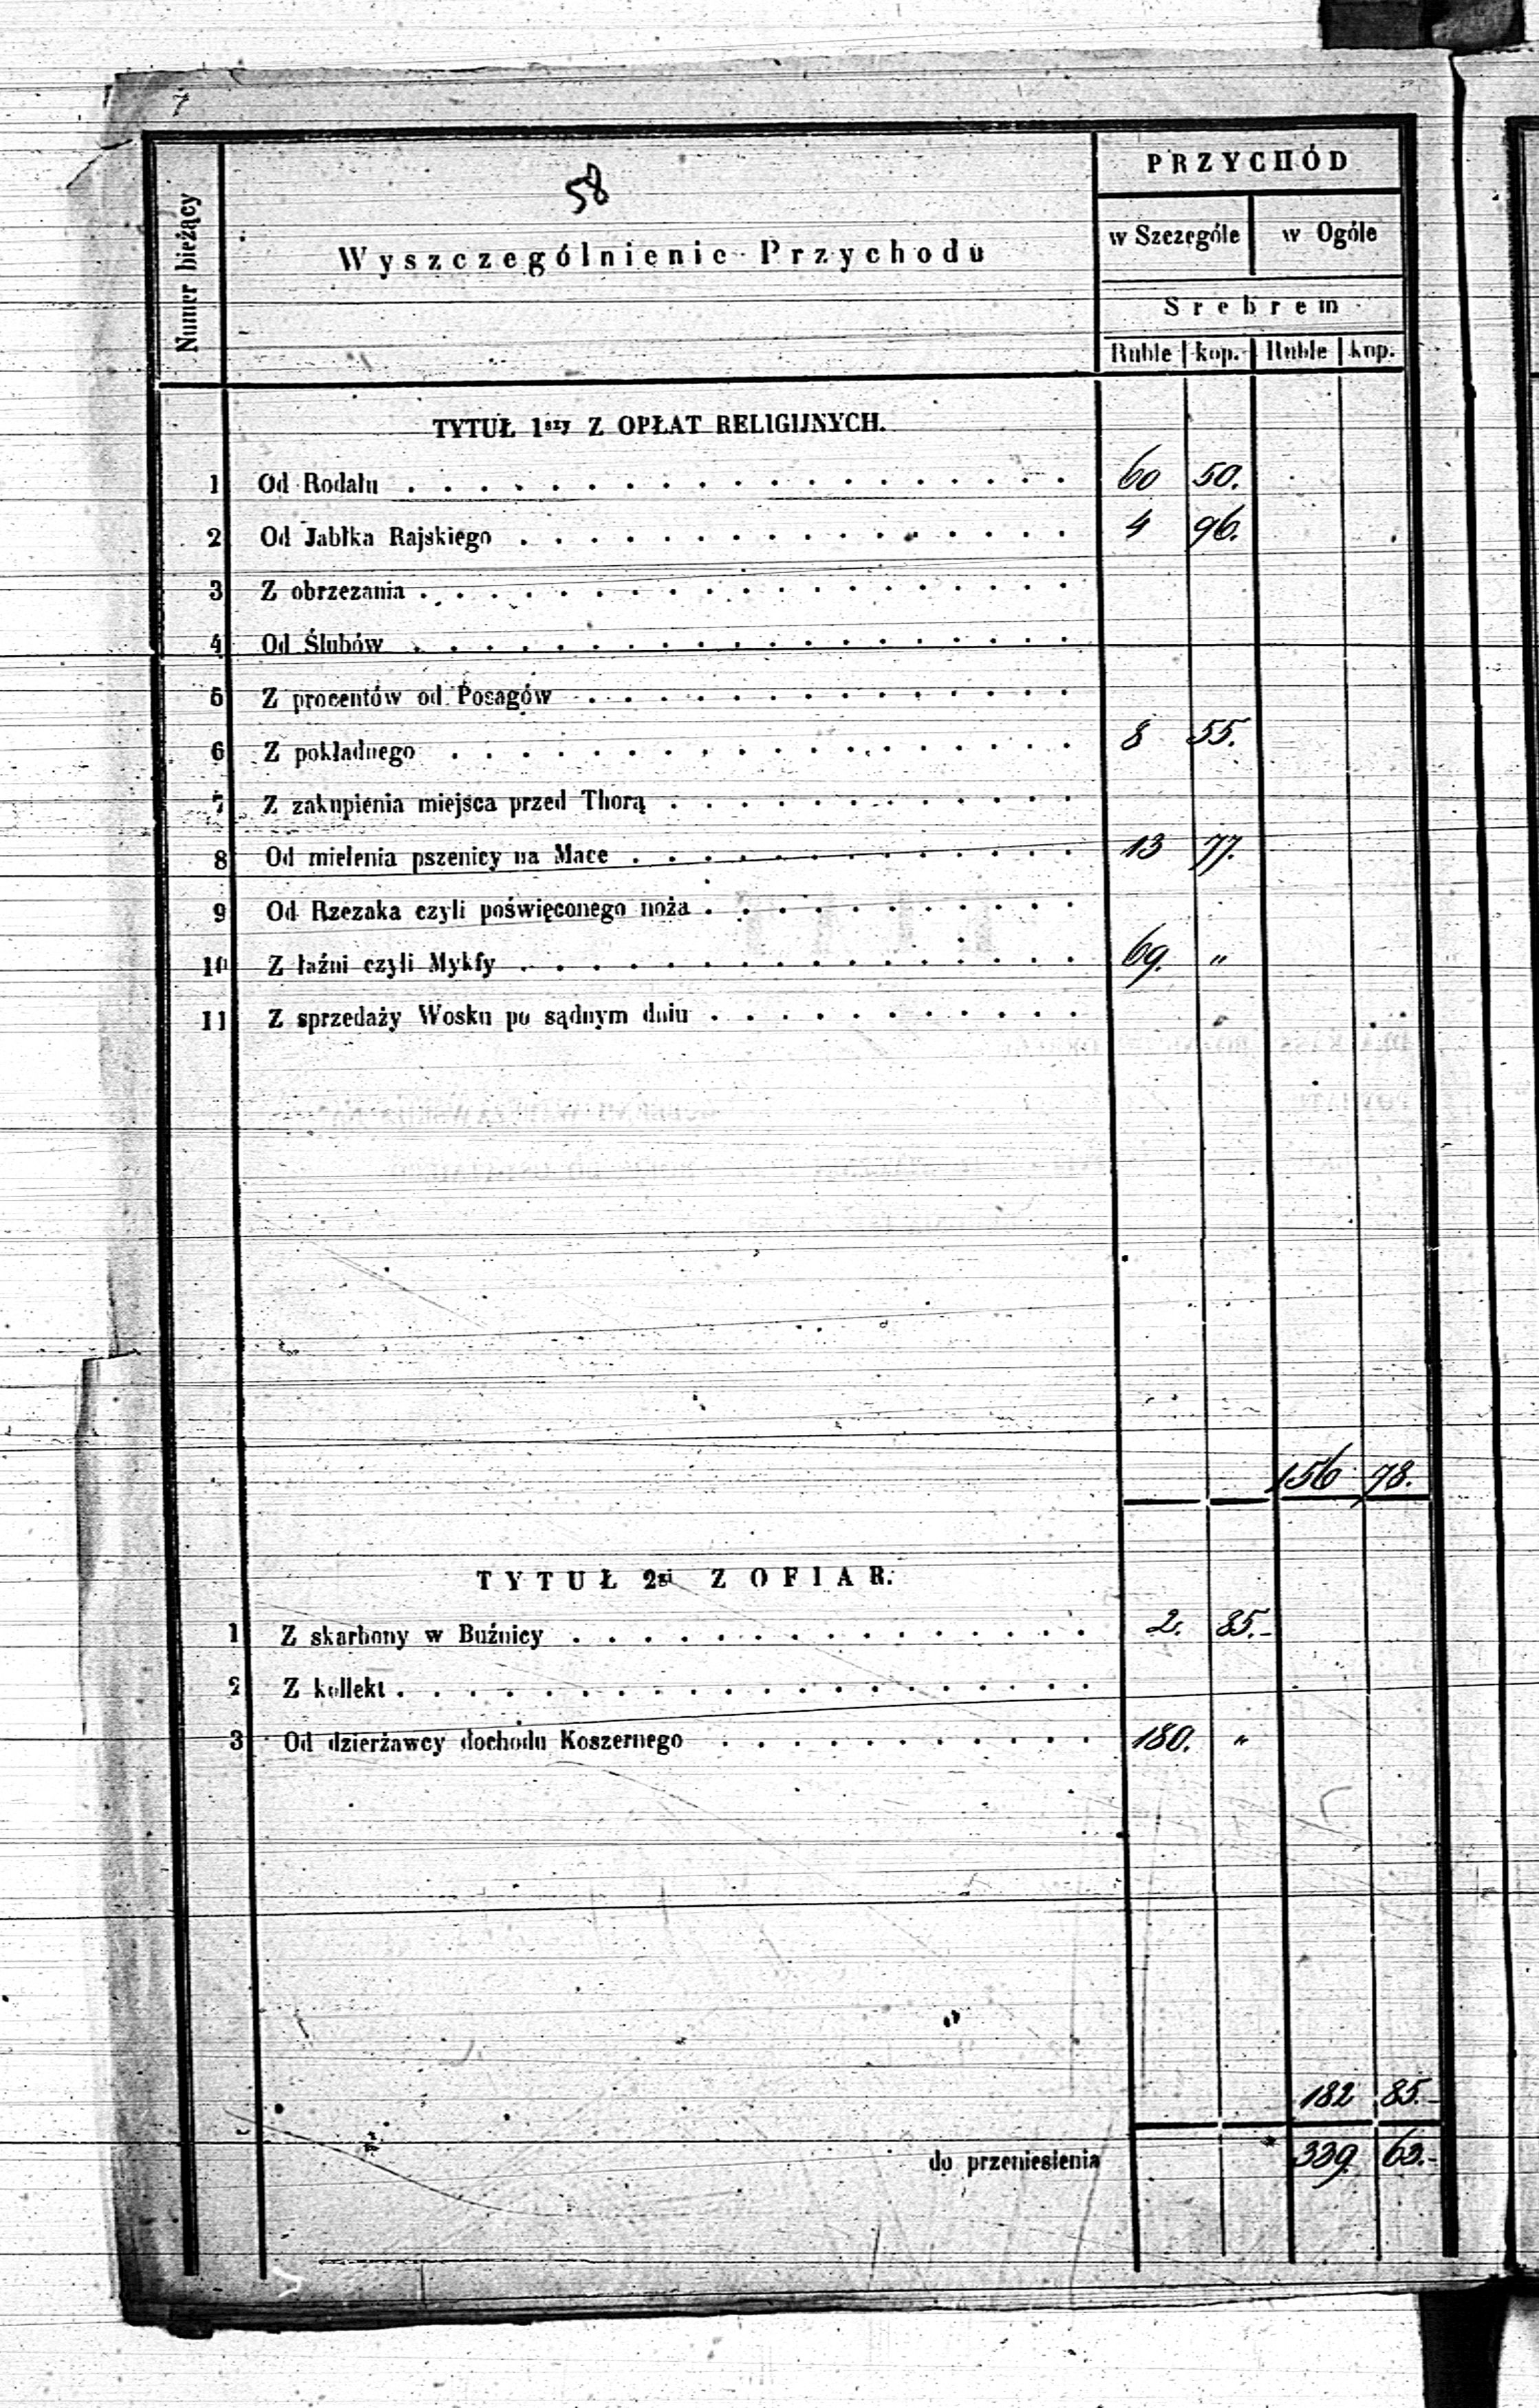 7
58
Numer bieżący
Wyszczególnienie Przychodu
PRZYCHÓD
w Szczególe w Ogóle
Srebrem
Ruble kop. Ruble kop.
TYTUŁ 1szy Z OPŁAT RELIGIJNYCH.
1 Od Rodału . . . . . . . . . . . . . . . . . . . 60 50.
2 Od Jabłka Rajskiego . . . . . . . . . . . . . . . . 4 96.
3 Z obrzezania . . . . . . . . . . . . . . . . . . .
4 Od Ślubów . . . . . . . . . . . . . . . . . . .
5 Z procentów od Posagów . . . . . . . . . . . . . .
6 Z pokładnego . . . . . . . . . . . . . . . . . . 8 55.
7 Z zakupienia miejsca przed Thorą . . . . . . . . . . . .
8 Od mielenia pszenicy na Mace . . . . . . . . . . . . . 13 77.
9 Od Rzezaka czyli poświęconego noża . . . . . . . . . . .
10 Z łaźni czyli Mykfy . . . . . . . . . . . . . . . . 69. "
11 Z sprzedaży Wosku po sądnym dniu . . . . . . . . . . .
156 78.
TYTUŁ 2gi Z OFIAR.
1 Z skarbony w Buźnicy . . . . . . . . . . . . . . . 2. 85.-
2 Z kollekt . . . . . . . . . . . . . . . . . . . .
3 Od dzierżawcy dochodu Koszernego . . . . . . . . . . . 180. "
182 85.-
do przeniesienia 339. 63.-